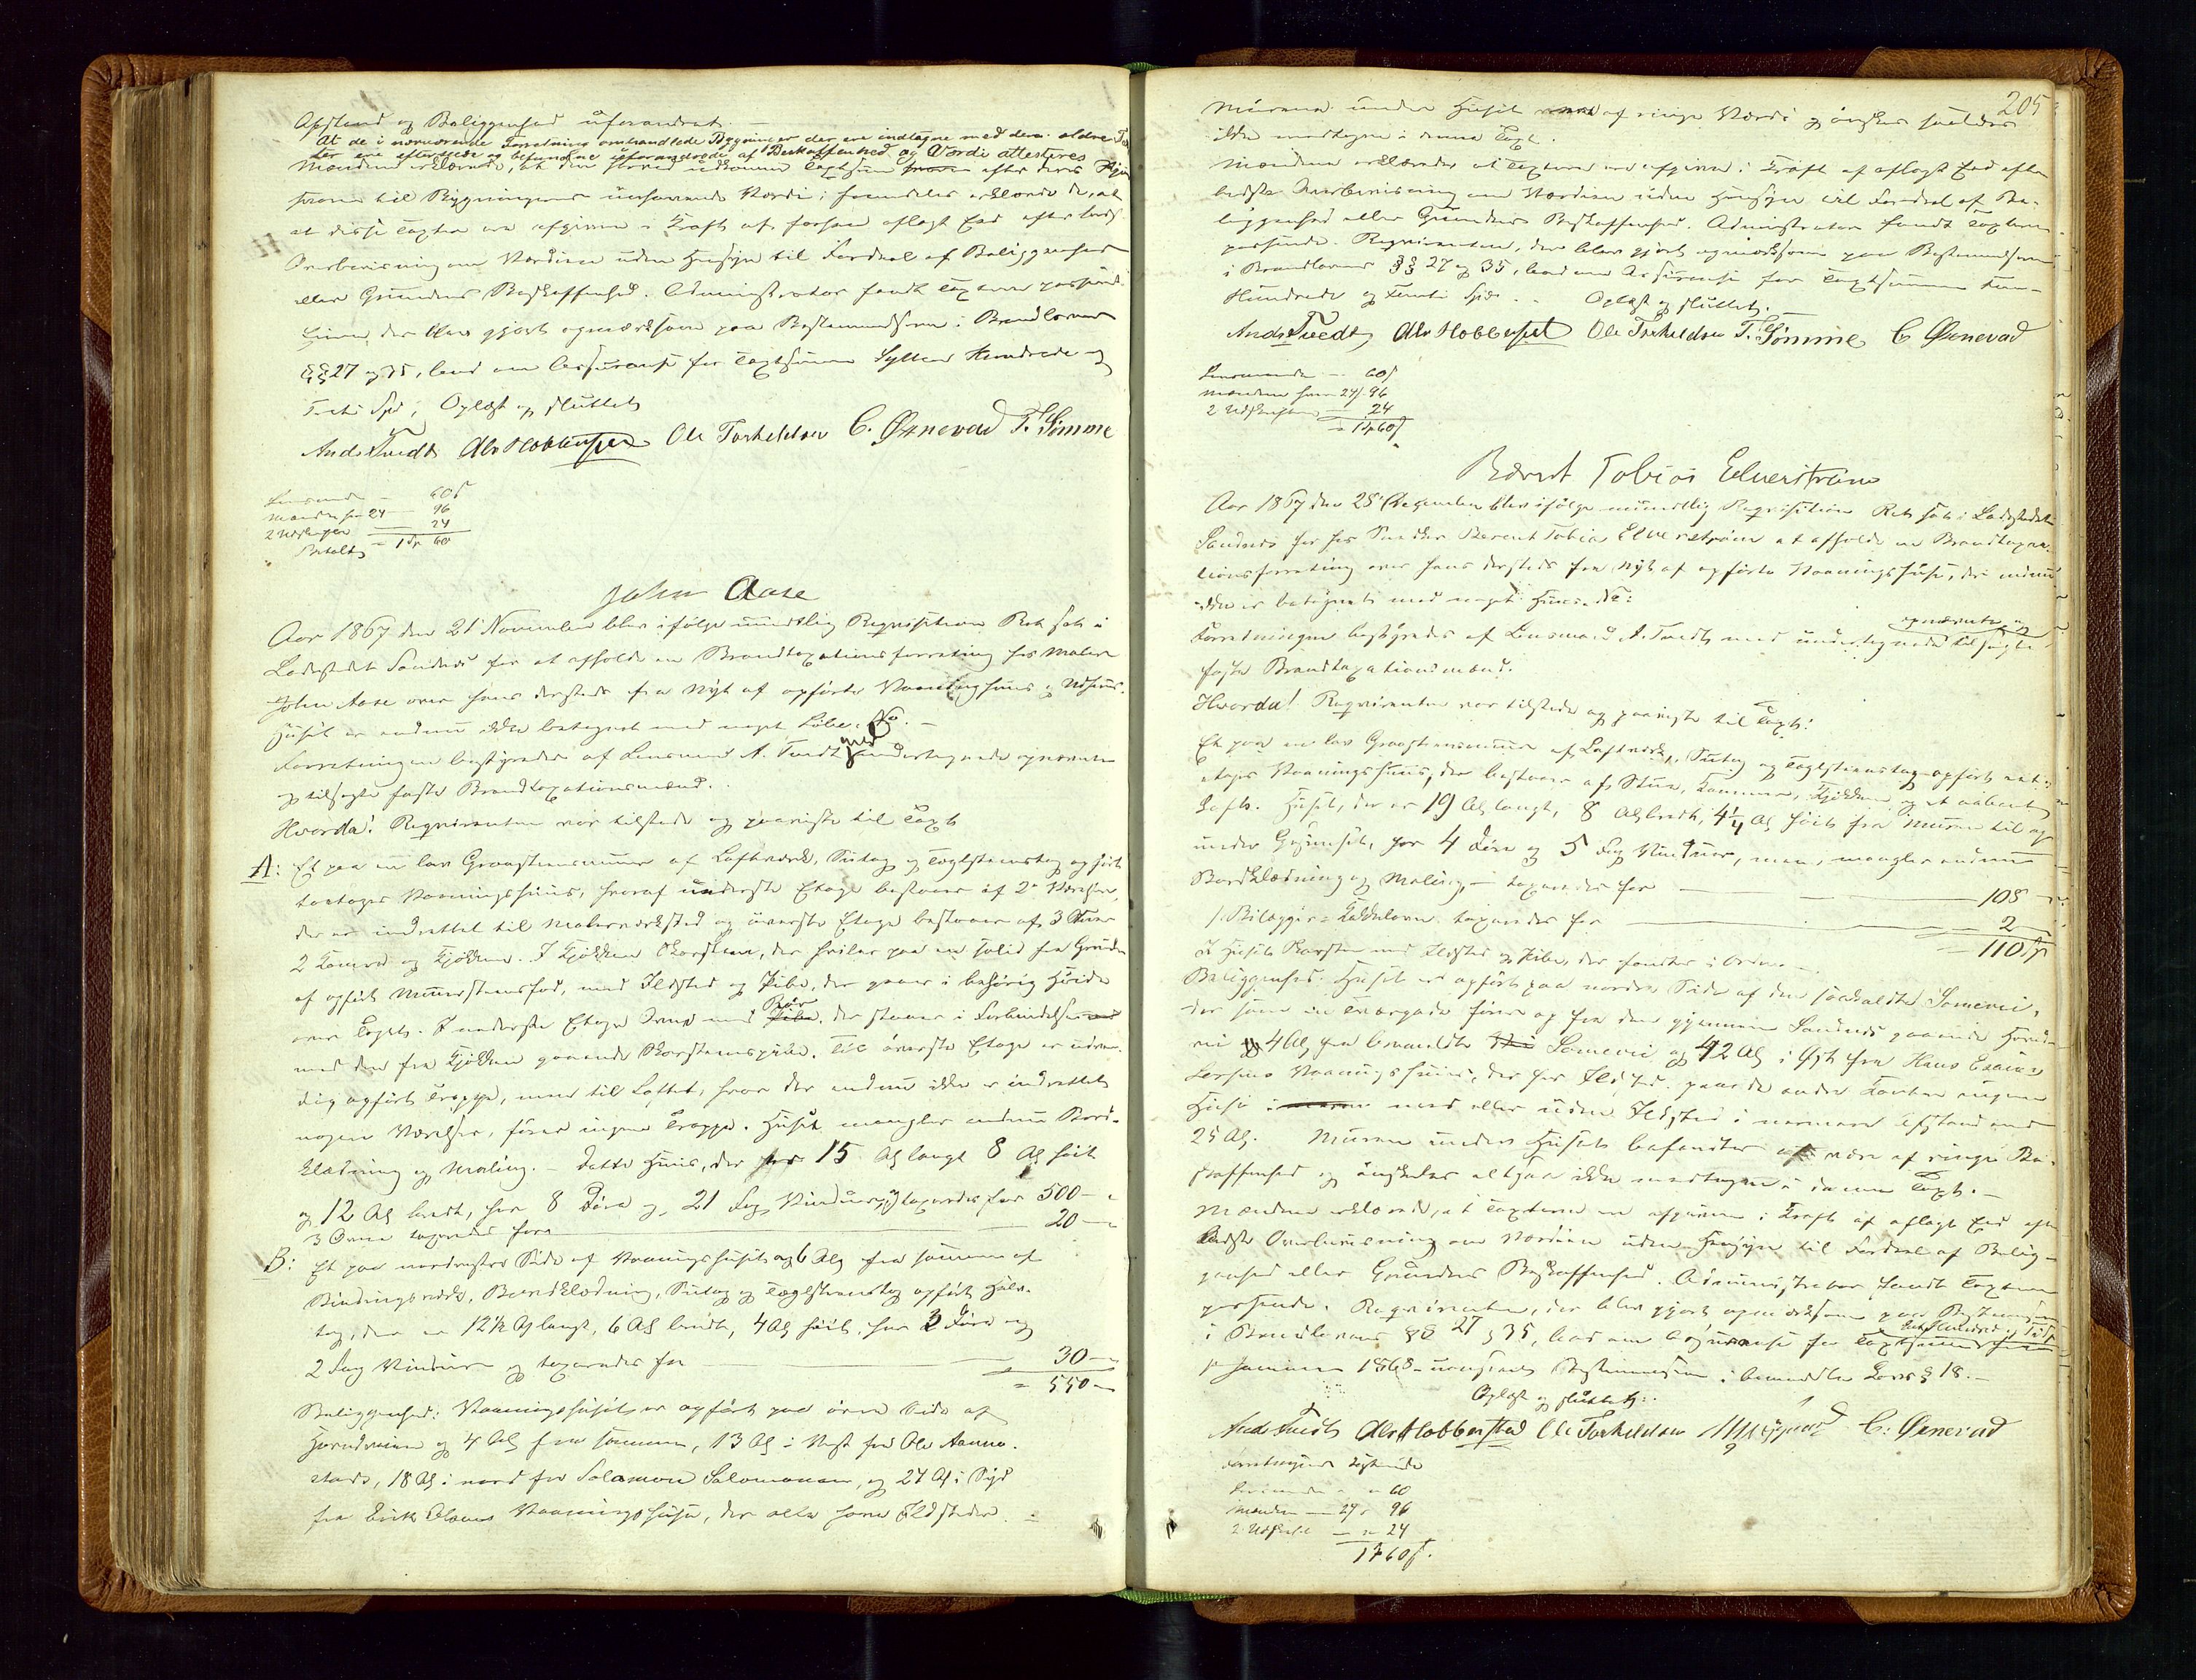 Afstand og Beliggenhed uforandret. —
At de i nærværende Forretning omhandlede Bygninger der ere indtagne med den ældre
der ere eftersete og befundne uforandrede af Beskaffenhed og Værdi attesteres
Mændene erklærede, at den forved udkomne Taxtsum efter deres
svarer til Bygningens nuværende Værdi; fremdeles erklærede de, at
at disse Taxter ere afgivne i Kraft af forhen aflagt Eed efter bedste
Overbeviisning om Værdien uden Hensyn til Fordeel af Beliggenhed
eller Grundens Beskaffenhed. Administrator fandt Taxterne passende.
der blev gjort opmærksom paa Bestemmelserne i Brandlovens
§§ 27 og 35, bad om Assurance for Taxtsummen Sytten Hundrede og
Spd; Oplæst og sluttet
Ands Tvedt Ole Hobberstad Ole Torkeldsen C. Øxnevad T. Sømme
Lensmanden — 60 s
Mændene hver 24 — 96
2 Udskrifter — 24
Betalt = 1 Sp 60
John Aase
Aar 1867 den 21 November blev ifølge mundtlig Reqvisition Ret sat i
Ladestedet Sandnes for at afholde en Brandtaxationsforretning hos Maler
John Aase over hans dersteds fra Nyt af opførte Vaaningshuus & Udhuus.
Huset er endnu ikke betegnet med noget Løbe No. —
Forretningen bestyredes af Lensmand A. Tvedt med undertegnede opnævnte
og tilsagte faste Brandtaxationsmænd.
Hvorda! Reqvirenten var tilstede og paaviste til Taxt
A: Et paa en lav Graasteensmuur af Laftværk, Sutag og Taglsteenstag opført
toetages Vaaningshuus, hvoraf underste Etage bestaaer af 2 Værelser,
der er indrettet til Malerværksted og øverste Etage bestaaer af 3 Stuer
2 Kamre og Kjøkken. I Kjøkken Skorsteen, der hviler paa en solid fra Grunden
af opført Muursteensfod, med Ildsted og Pibe, der gaaer i behørig Høide
over Taget. I underste Etage Ovn med Rør der staaer i Forbindelse
med den fra Kjøkken gaaende Skorsteenspibe. Til øverste Etage er udven-
dig opført Trappe, men til Loftet, hvor der endnu ikke er indrettet
nogen Værelser, fører ingen Trappe. Huset mangler endnu Bord-
klædning og Maling. — Dette Huus, der er 15 Al langt 8 Al høit
og 12 Al bredt, har 8 Døre og 21 Fag Vinduer, taxeredes for 500 —
3 Ovne taxeredes for — 20 —
B: Et paa nordvestre Side af Vaaningshuset og 6 Al fra samme af
Bindingsværk, Bordklædning, Sutag og Taglsteenstag opført Halv-
tag, der er 12½ Al langt, 6 Al bredt, 4 Al høit, har 3 Døre og
2 Fag Vinduer og taxeredes for — 30 —
= 550 —
Beliggenhed: Vaaningshuset er opført paa øvre Side af
Hovedveien og 4 Al fra samme, 13 Al i Vest fra Ole Aanne-
stads, 18 Al i nord fra Salamon Salomonsen, og 27 Al i Syd
fra Erik Olsens Vaaningshuse, der alle have Ildsteder. —
205
Murene under Huset af ringe Værdi og ønskes saaledes
ikke medtagne i denne Taxt.
Mændene erklærede at Taxterne ere afgivne i Kraft af aflagt Eed efter
bedste Overbeviisning om Værdien uden Hensyn til Fordeel af Be-
liggenhed eller Grundens Beskaffenhed. Administrator fandt Taxterne
passende. Reqvirenten, der blev gjort opmærksom paa Bestemmelserne
i Brandlovens §§ 27 og 35, bad om Assurance for Taxtsummen Fem-
Hundrede og Femti Spd. — Oplæst og sluttet.
Ands Tvedt Ole Hobberstad Ole Torkeldsen T. Sømme C Øxnevad
Lensmanden — 60 s
Mændene hver 24 s 96
2 Udskrifter — 24
= 1 Sp 60 s
Berent Tobias Elverstrøm
Aar 1867 den 28 December blev ifølge mundtlig Reqvisition Ret sat i Ladestedet
Sandnes for hos Snedker Berent Tobias Elverstrøm at afholde en Brandtaxa-
tionsforretning over hans dersteds fra Nyt af opførte Vaaningshuse, der endnu
ikke er betegnet med noget Huus-No:
Forretningen bestyredes af Lensmand A. Tvedt med undertegnede opnævnte og tilsagte
faste Brandtaxationsmænd.
Hvorda! Reqvirenten var tilstede og paaviste til Taxt:
Et paa en lav Graasteensmuur af Laftværk, Sutag og Taglsteenstag opført eet-
etages Vaaningshuus, der bestaaer af Stue, Kammer, Kjøkken og et aabent
Loft. Huset, der er 19 Al langt, 8 Al bredt, 4¼ Al høit fra Muren til op
under Gesimset, har 4 Døre og 5 Fag Vinduer, men mangler endnu
Bordklædning og Maling, — taxeredes for — 108 —
1 Bilægger-Kakkelovn taxeredes for — 2
= 110 Sp
I Huset Skorsteen med Ildsted og Pibe, der fandtes i Orden —.
Beliggenhed: Huset er opført paa nordre Side af den saakaldte Somevei,
der som en Tværgade fører op fra den gjennem Sandnes gaaende Hoved-
vei 4 Al fra bemeldte Somevei og 42 Al i Øst fra Hans
Vaaningshuus, der har Ildsted. paa de andre Kanter ingen
Huse med eller uden Ildsted i nærmere Afstand end
25 Al. Muren under Huset befandtes at være af ringe Be-
skaffenhed og ønskedes altsaa ikke medtagen i denne Taxt. —
Mændene erklærede, at Taxterne ere afgivne i Kraft af aflagt Eed efter
bedste Overbeviisning om Værdien uden Hensyn til Fordeel af Belig-
genhed eller Grundens Beskaffenhed. Administrator fandt Taxterne
passende. Reqvirenten, der blev gjort opmærksom paa Bestemmelserne
i Brandlovens §§ 27 & 35, bad om Assurance for Taxtsummen
Januar 1868 Bestemmelsen i bemeldte Lovs § 18. —
Oplæst og sluttet:
Ands Tvedt Ole Hobberstad Ole Torkeldsen C. Øxnevad
Forretningens Bekostning
Lensmanden — 60
Mændene — 24 s 96
2 Udskrifter — 24
1 Sp 60 s.